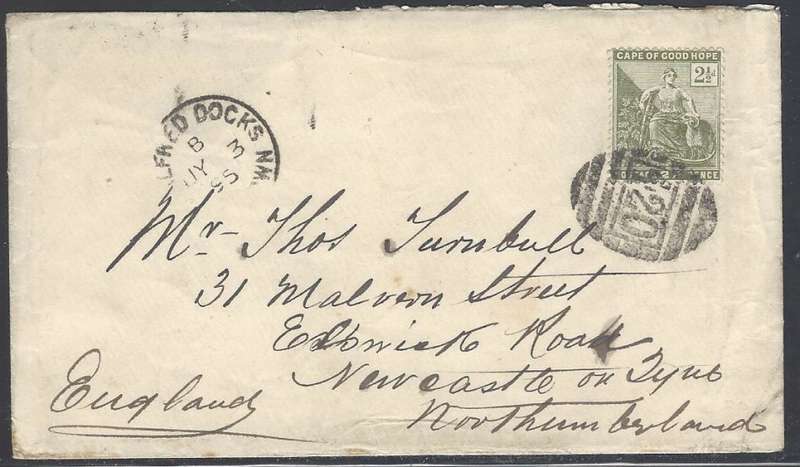 CAPE OF GOOD HOPE
2½d
LFRED DOCKS NM
B 3
JY
95
Mr Thos Turnbull
31 Malvern Street
Elswick Road
Newcastle on Tyne
Northumberland
England